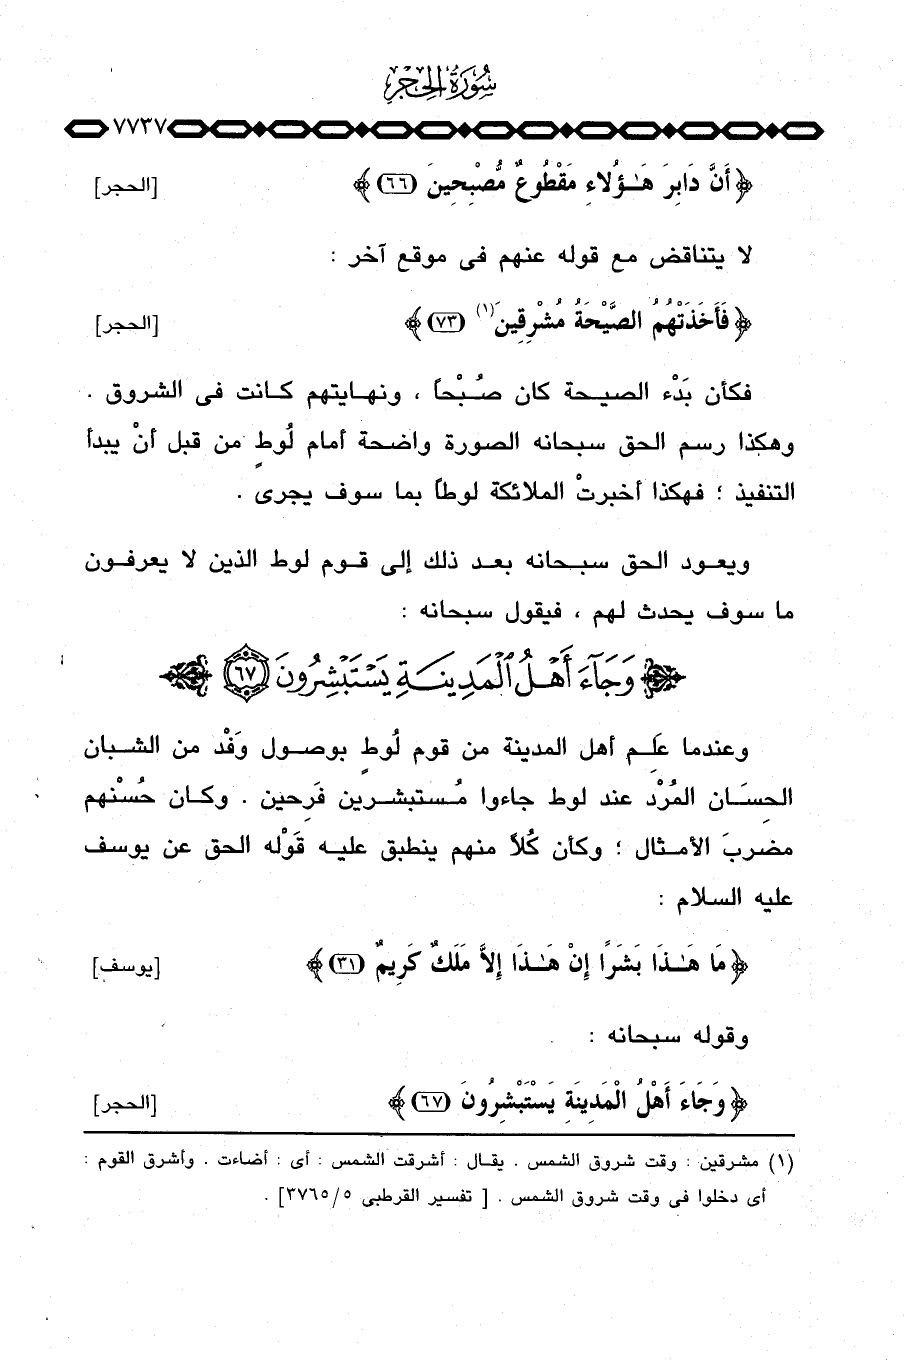 سُورَةُ الحِجْرِ
٧٧٣٧
﴿ أَنَّ دَابِرَ هَـٰؤُلاءِ مَقْطُوعٌ مُّصْبِحِينَ (٦٦) ﴾ [الحجر]
لا يتناقض مع قوله عنهم فى موقع آخر :
﴿ فَأَخَذَتْهُمُ الصَّيْحَةُ مُشْرِقِينَ (١) (٧٣) ﴾ [الحجر]
فكأن بَدْء الصيحة كان صُبْحاً ، ونهايتهم كانت فى الشروق .
وهكذا رسم الحق سبحانه الصورة واضحة أمام لُوطٍ من قبل أنْ يبدأ
التنفيذ ؛ فهكذا أخبرتْ الملائكة لوطاً بما سوف يجرى .
ويعود الحق سبحانه بعد ذلك إلى قوم لوط الذين لا يعرفون
ما سوف يحدث لهم ، فيقول سبحانه :
﴿ وَجَآءَ أَهْلُ ٱلْمَدِينَةِ يَسْتَبْشِرُونَ (٦٧) ﴾
وعندما علِم أهل المدينة من قوم لُوطٍ بوصول وَفْد من الشبان
الحِسَان المُرْد عند لوط جاءوا مُستبشرين فَرِحين . وكان حُسْنهم
مضربَ الأمثال ؛ وكأن كُلاً منهم ينطبق عليه قَوْله الحق عن يوسف
عليه السلام :
﴿ مَا هَـٰذَا بَشَرًا إِنْ هَـٰذَا إِلاَّ مَلَكٌ كَرِيمٌ (٣١) ﴾ [يوسف]
وقوله سبحانه :
﴿ وَجَاءَ أَهْلُ الْمَدِينَةِ يَسْتَبْشِرُونَ (٦٧) ﴾ [الحجر]
(١) مشرقين : وقت شروق الشمس . يقال : أشرقت الشمس : أى : أضاءت . وأشرق القوم :
أى دخلوا فى وقت شروق الشمس . [ تفسير القرطبى ٣٧٦٥/٥] .